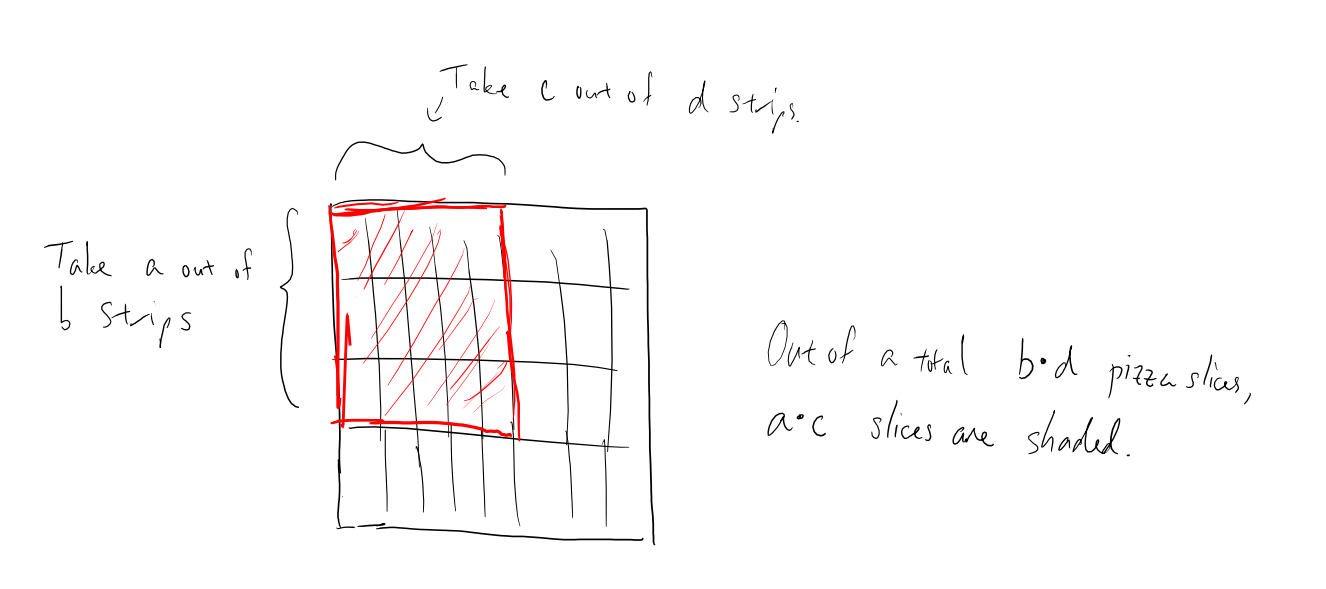 Take c out of d strips.
Take a out of
b strips
Out of a total b·d pizza slices,
a·c slices are shaded.